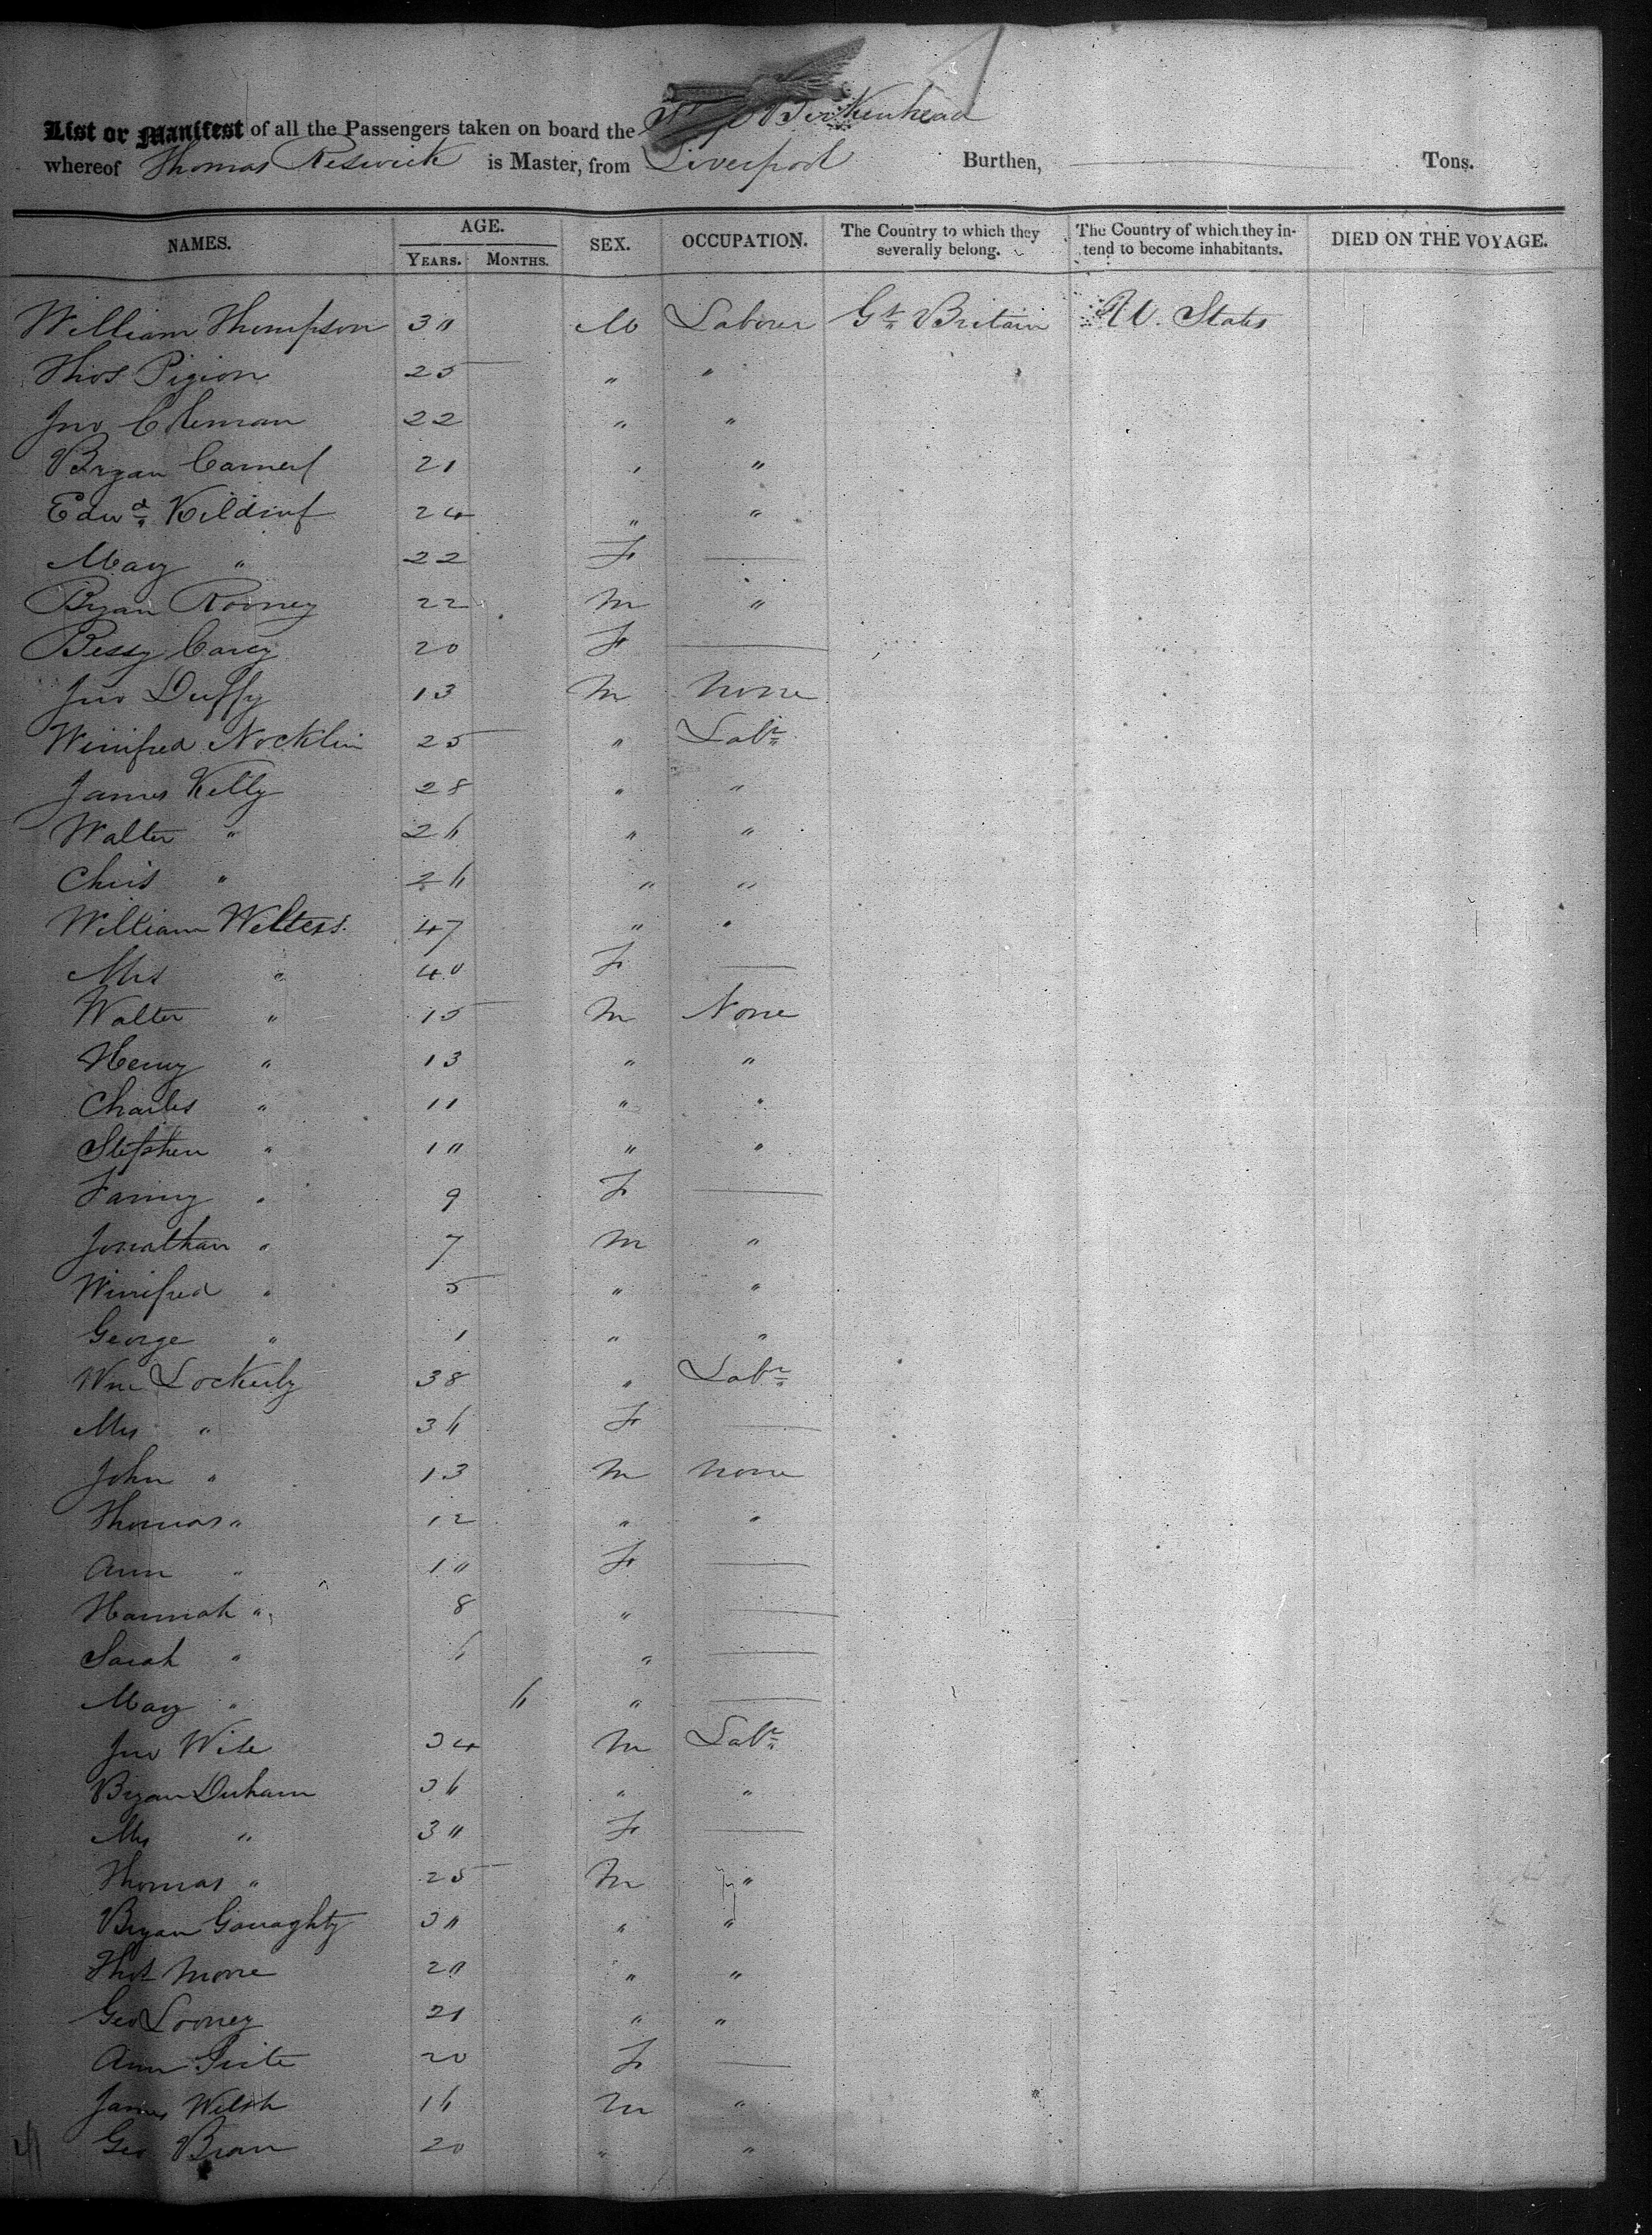 List or Manifest of all the Passengers taken on board the Ship Birkenhead
whereof Thomas Reswick is Master, from Liverpool Burthen, Tons.
NAMES. AGE. YEARS. MONTHS. SEX. OCCUPATION. The Country to which they severally belong. The Country of which they intend to become inhabitants. DIED ON THE VOYAGE.
William Thompson 30 M Laborer Gt Britain U. States
Thos Pigion 25 " "
Jno Coleman 22 " "
Bryan 21 " "
Edwd 24 " "
Mary " 22 F
Bryan Rooney 22 M "
Bessy Carey 20 F
Jno Duffy 13 M None
Winifred Nocklin 25 " Labr
James Kelly 28 " "
Walter " 26 " "
Chris " 26 " "
William Welters 47 " "
Mrs " 40 F
Walter " 15 M None
Henry " 13 " "
Charles " 11 " "
Stephen " 10 " "
Fanny " 9 F
Jonathan " 7 M "
Winifred " 5 " "
George " 1 " "
Wm Lockerby 38 " Labr
Mrs " 36 F
John " 13 M None
Thomas " 12 " "
Ann " 10 F
Hannah " 8 "
Sarah " 6 "
Mary " 6 "
Jno Wile 34 M Labr
Bryan Durham 36 " "
Mrs " 30 F
Thomas " 25 M "
Bryan 30 " "
Thos Moore 20 " "
Geo Looney 21 " "
Ann 20 F
James Welsh 16 M "
Geo 20 " "